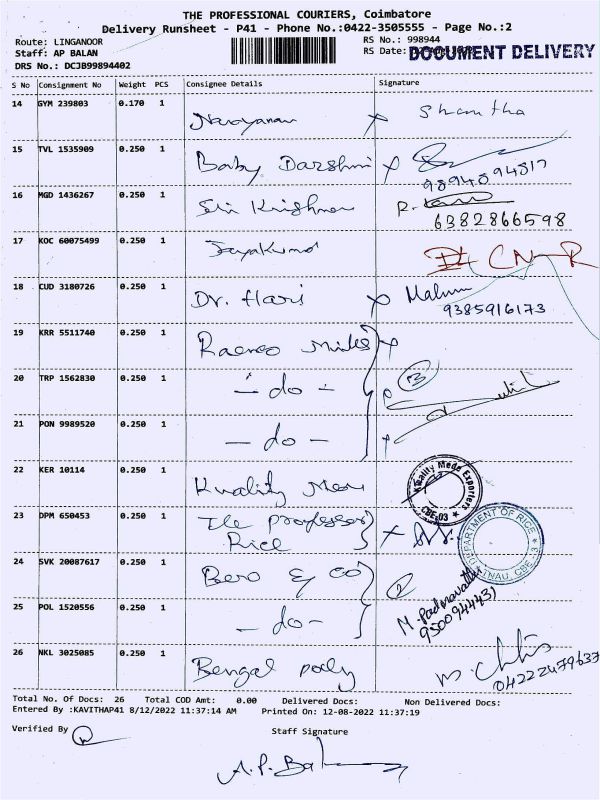 THE PROFESSIONAL COURIERS, Coimbatore
Delivery Runsheet - P41 - Phone No.:0422-3505555 - Page No.:2
Route: LINGANOOR RS No.: 998944
Staff: AP BALAN RS Date: DOCUMENT DELIVERY
DRS No.: DCJB99894402
S No Consignment No Weight PCS Consignee Details Signature
14 GYM 239803 0.170 1 Narayanan x Shantha
15 TVL 1535909 0.250 1 Baby Darshini x
9894894517
16 MGD 1436267 0.250 1 Sri Krishna R.
6382866598
17 KOC 60075499 0.250 1 Jayakumar
18 CUD 3180726 0.250 1 Dr. Hari x
9385916173
19 KRR 5511740 0.250 1
20 TRP 1562830 0.250 1 - do - 3
21 PON 9989520 0.250 1 - do -
22 KER 10114 0.250 1 Kwality Men Kwality Mede Exporters CBE-03
23 DPM 650453 0.250 1 The professor x DEPARTMENT OF RICE
Rice TNAU, CBE-3
24 SVK 20087617 0.250 1 Bero & Co 2
25 POL 1520556 0.250 1 - do - M. Padmavathi
9500944431
26 NKL 3025085 0.250 1 Bengal poly
04222479637
Total No. Of Docs: 26 Total COD Amt: 0.00 Delivered Docs: Non Delivered Docs:
Entered By :KAVITHAP41 8/12/2022 11:37:14 AM Printed On: 12-08-2022 11:37:19
Verified By Staff Signature
A.P. Bal